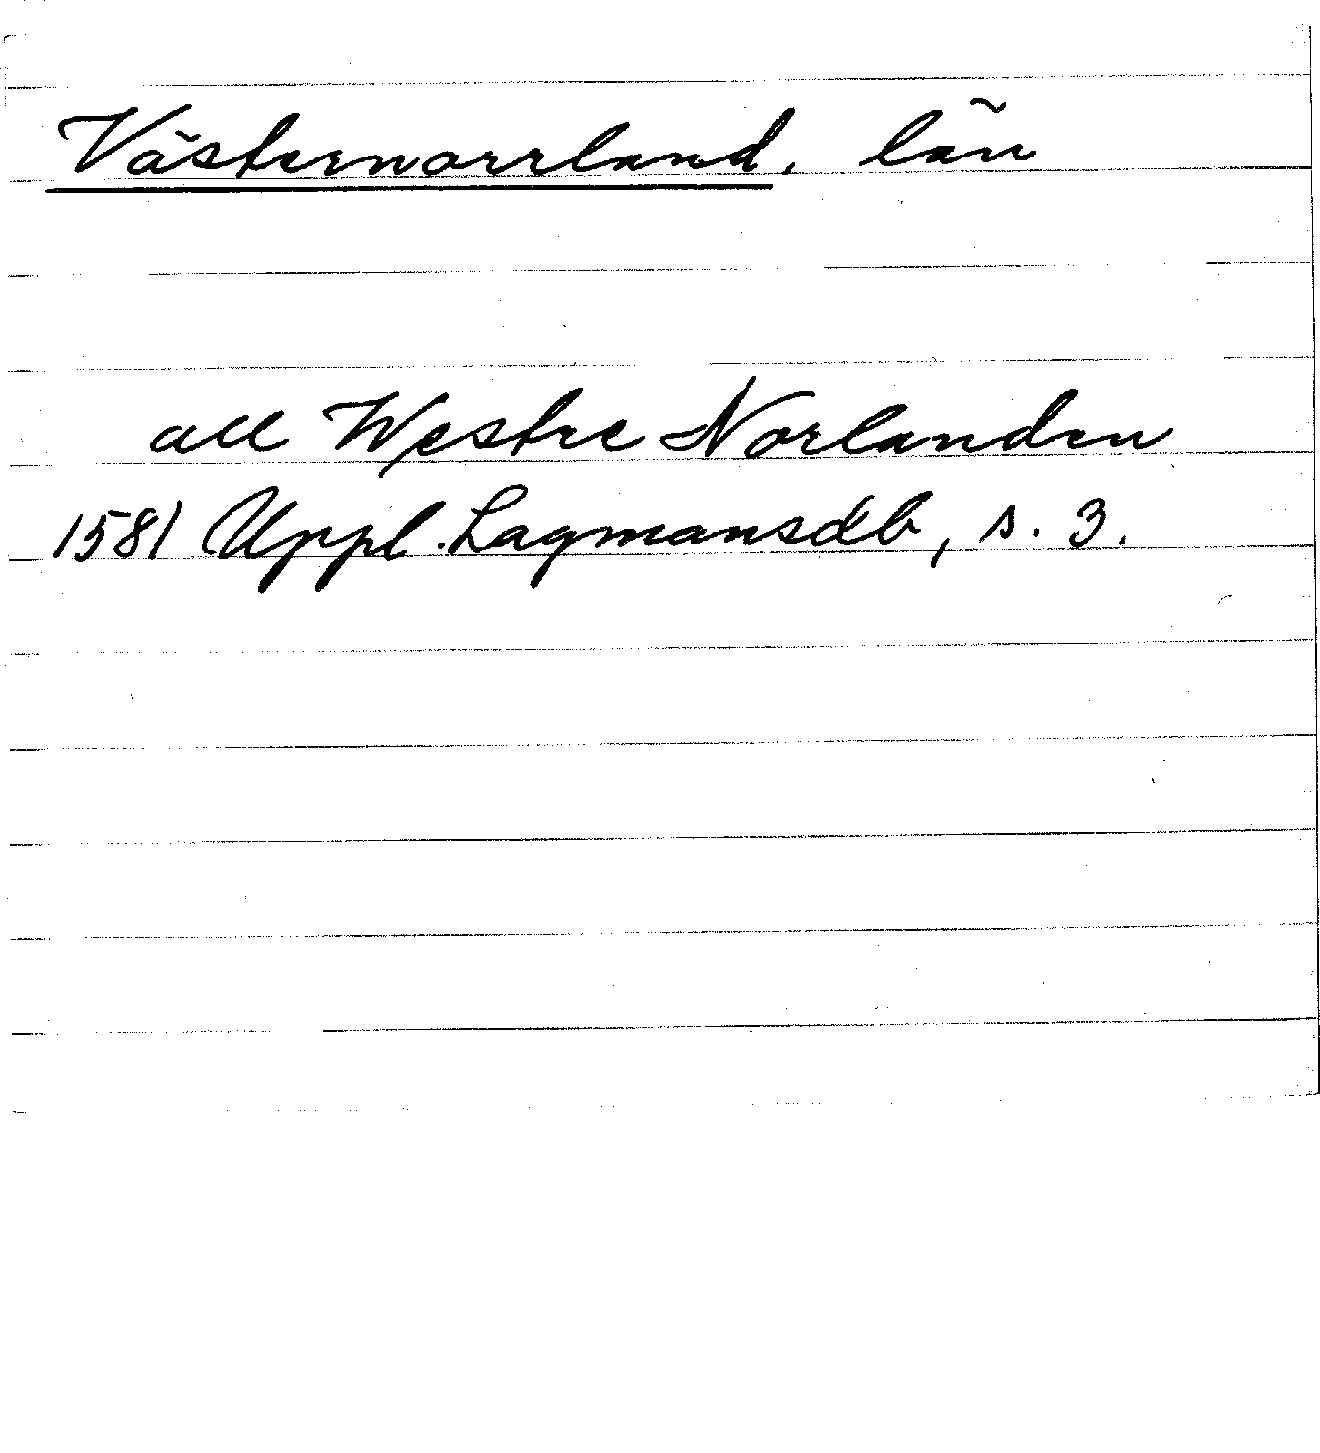 Västernorrland, län
all Westre Norlanden
1581 Uppl. Lagmansdb, s. 3.